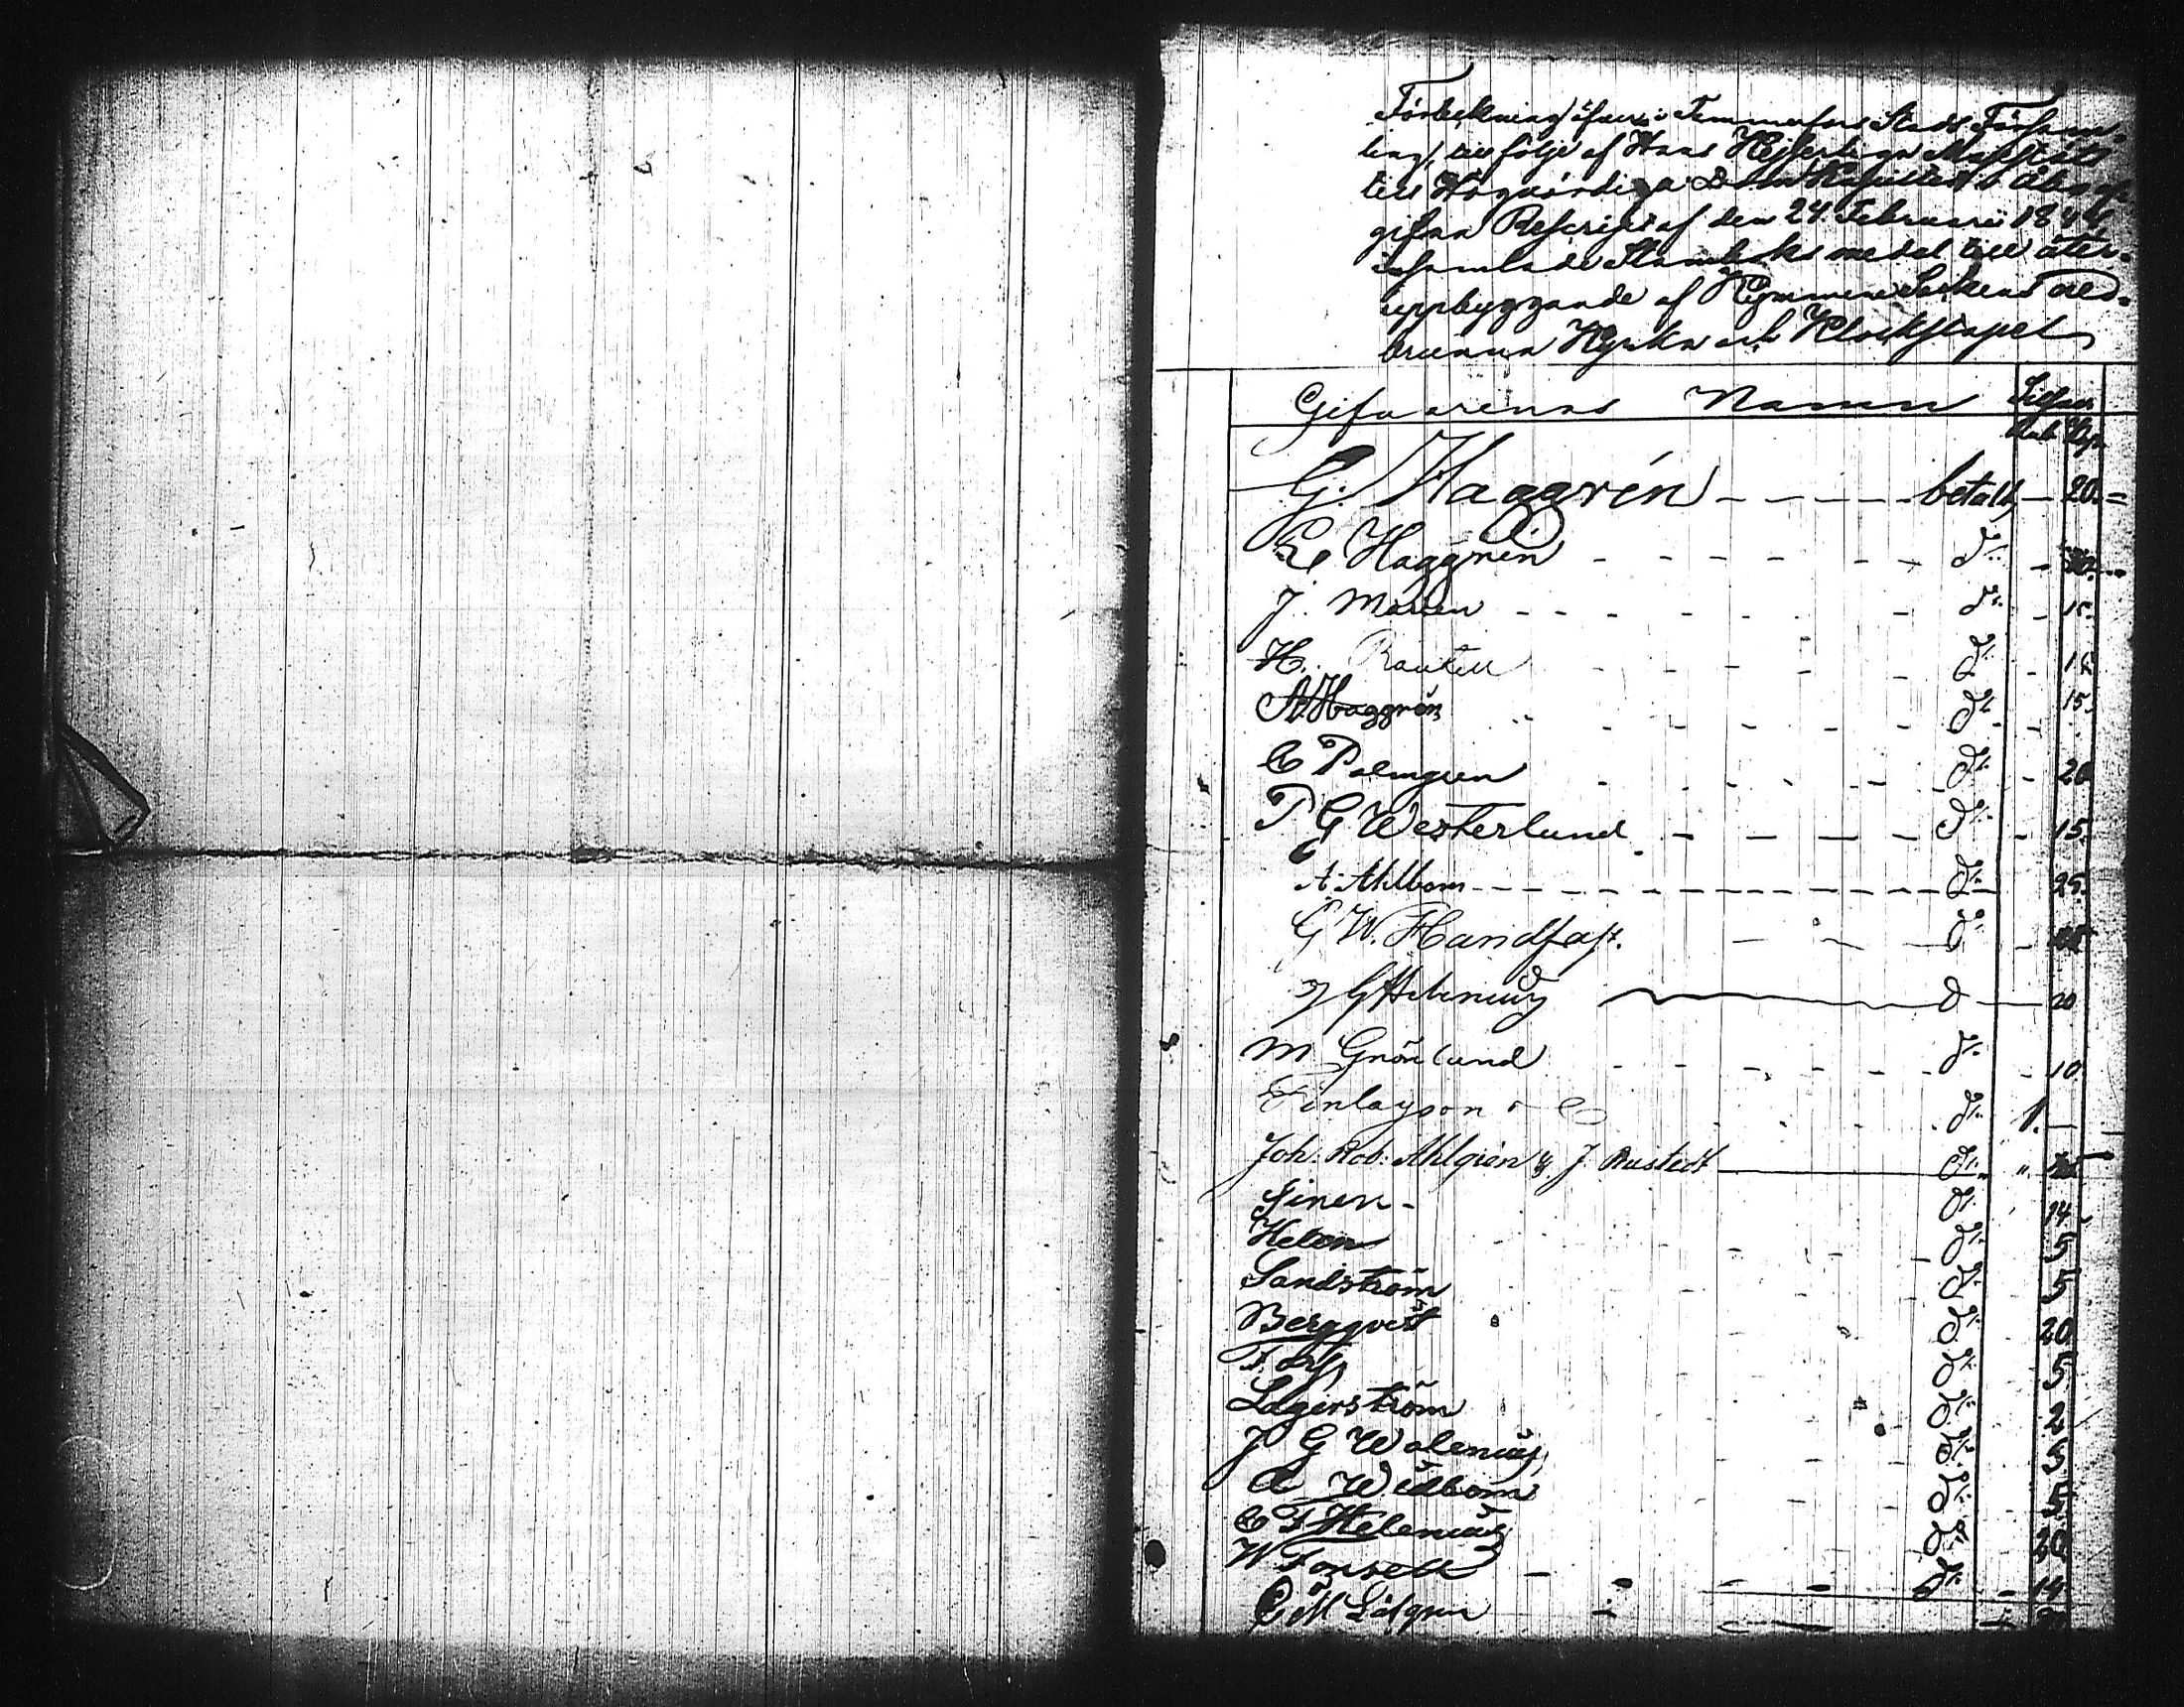 Förteckning öfver i Tammerfors Stads Försam-
ling, till följe af Hans Kejserliga Majestäts
till Högvördiga DomKapitlet i Åbo af-
gifna Rescript af den 24 Februarii 1846
insamlade Stamboks medel till åter-
uppbyggande af Kymmene Sockens ned-
brunna Kyrka och Klockstapel
Gifvarenas Namn Silfver
Rub Kop
G. Haggrén betalt 20.
Haggrén Do
J. Do 15.
H. Do 15
A Haggrén Do 15.
C Palmgren Do 20
P G Westerlund Do 15.
A. Ahlbom Do 25.
G W. Handfast. Do
J G Helenius D 20
M Grönlund Do 10
Finlayson & Co Do 1. —
Joh: Rob: Ahlgren & J. Do
Do 14
Do 5
Sandström Do 5
Bergqvist Do 20
Do 5
Lagerström Do 2
J G Walenius Do 5
A Widbom Do 5
C F Helenius Do 20
W Do 14